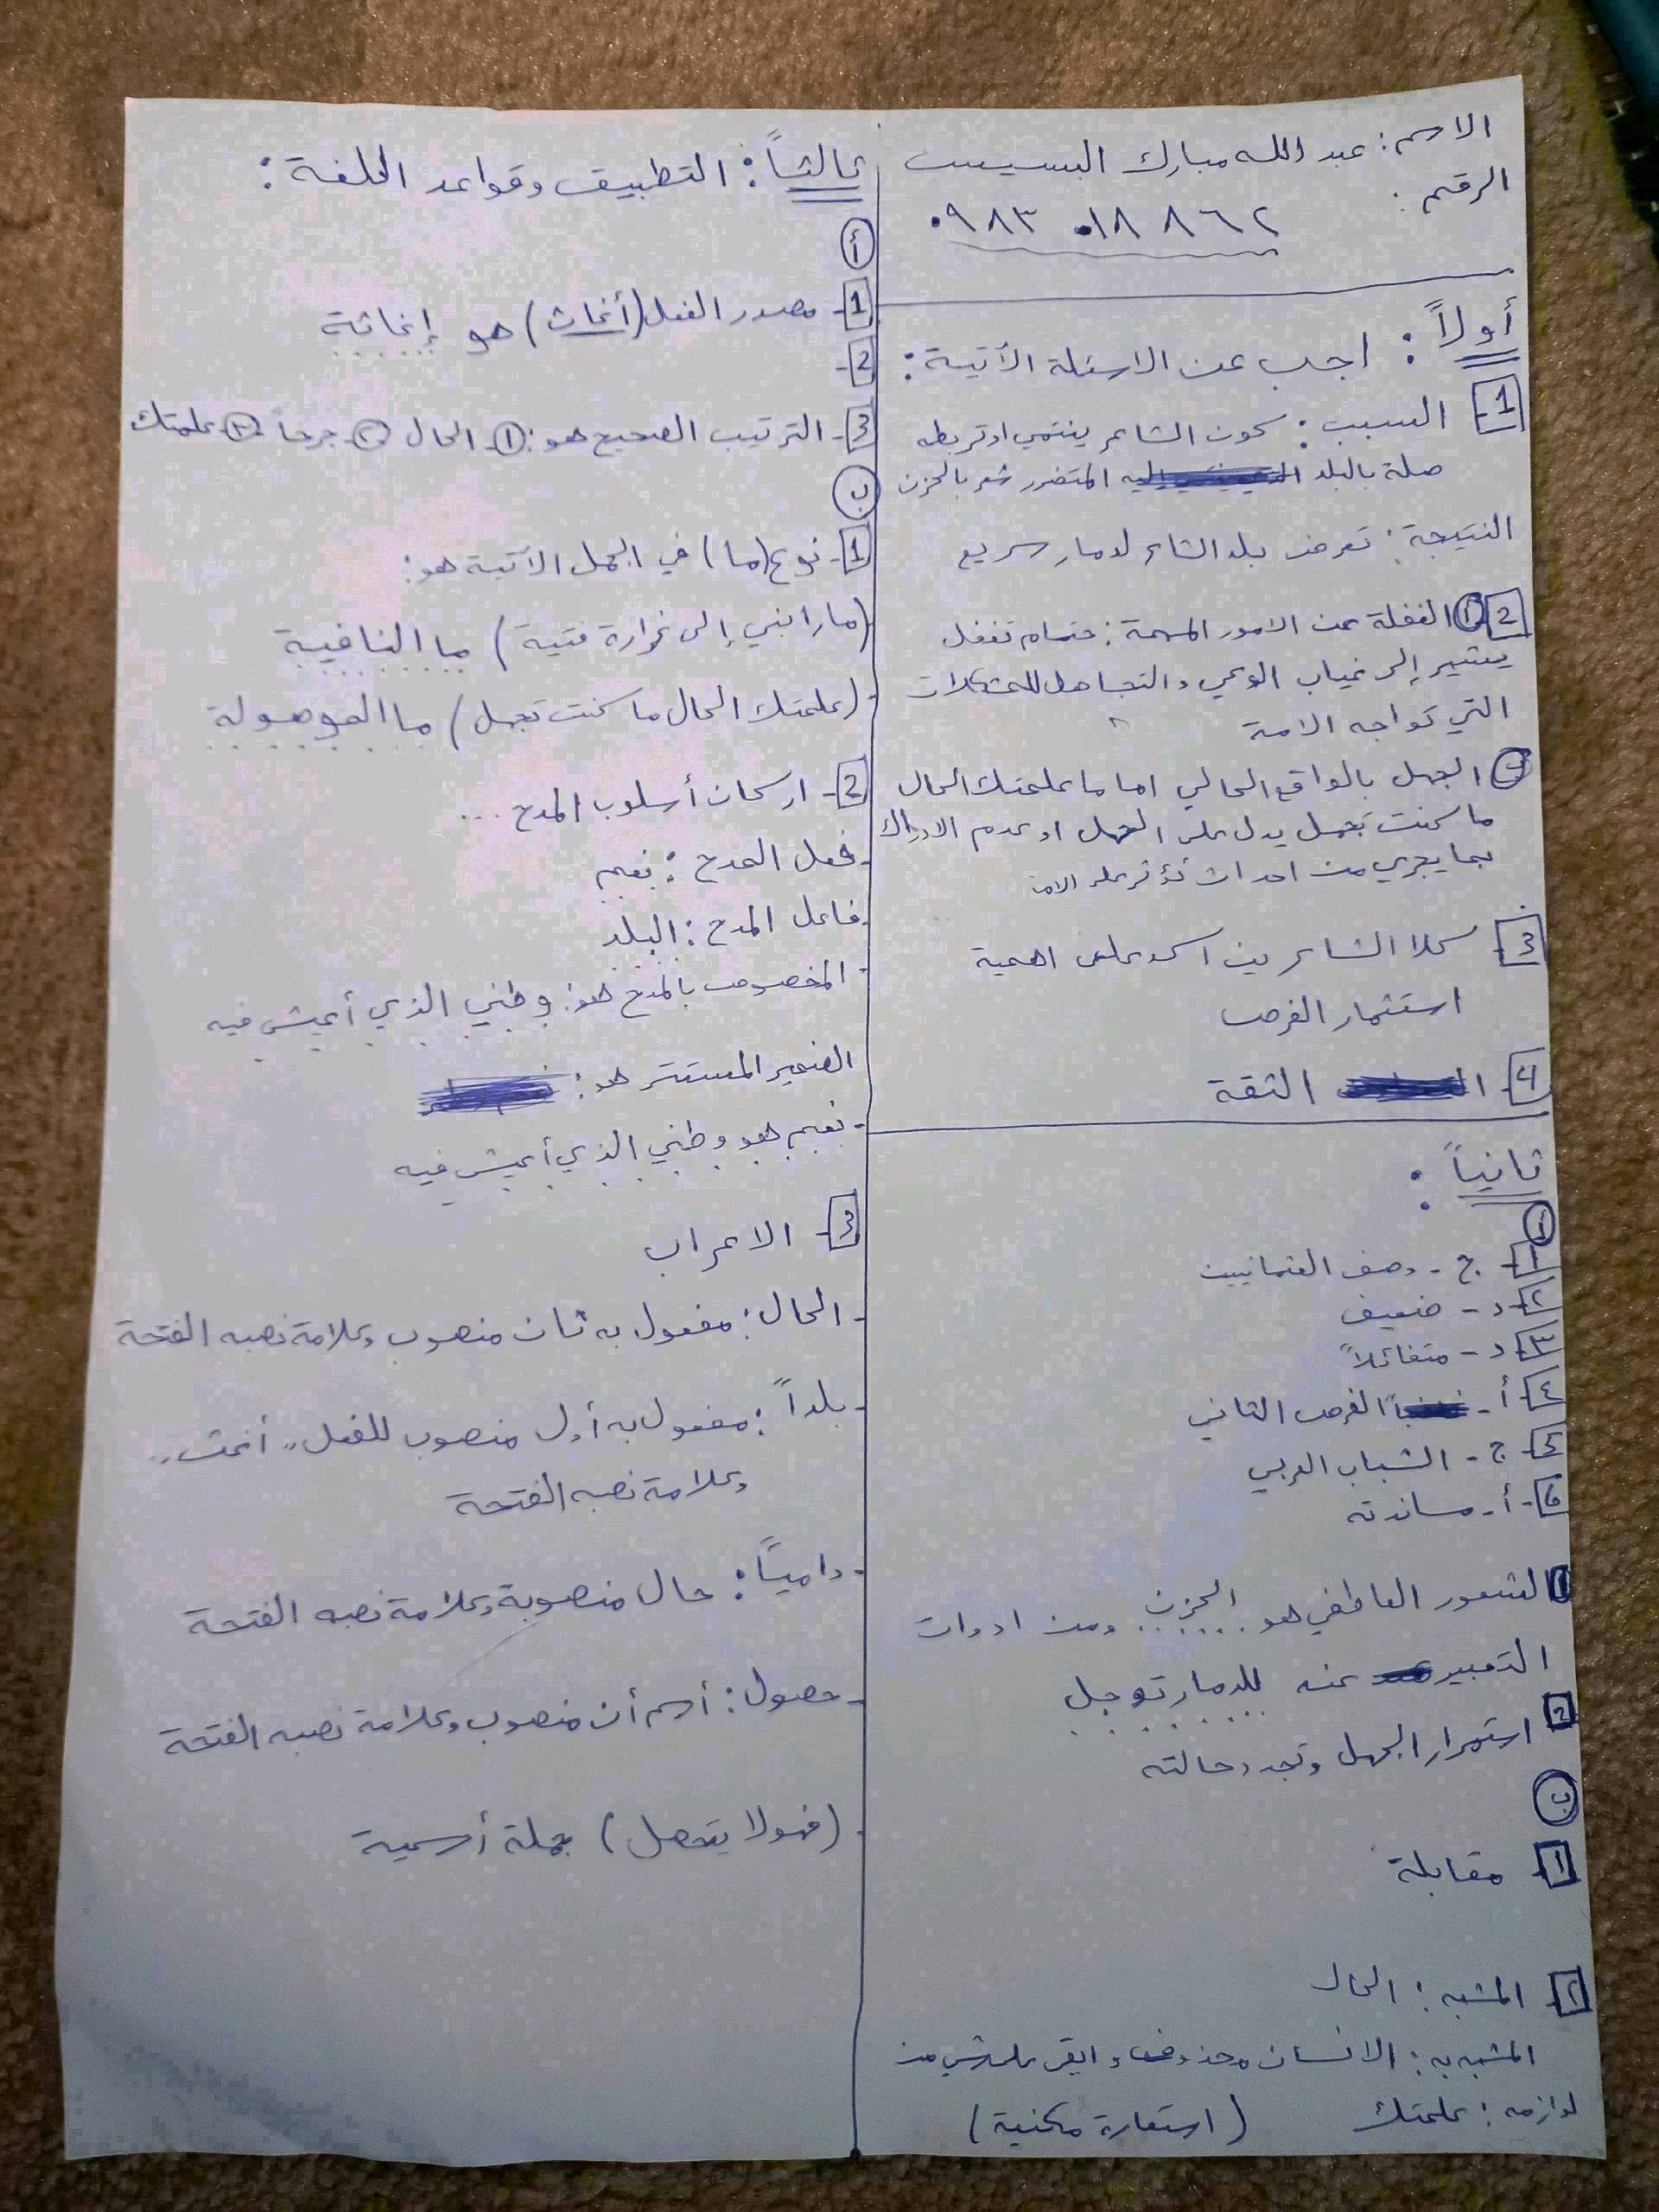 الاسم: عبد الله مبارك السيس
الرقم:
٠٩٨٣ ٠١٨ ٨٦٢
أولاً: اجب عن الاسئلة الآتية:
1- السبب: كون الشاعر ينتمي او تربطه
صلة بالبلد المتضرر شعر بالحزن
النتيجة: تعرض بلد الشاعر لدمار سريع
2 ١ الغفلة عن الامور المهمة: حتام تغفل
يشير إلى غياب الوعي والتجاهل للمشكلات
التي تواجه الامة
الجهل بالواقع الحالي اما ما علمتك الحال
ما كنت تجهل يدل على الجهل او عدم الادراك
بما يجري من احداث تؤثر على الامة
3- كلا الشاعرين اكد على اهمية
استثمار الفرص
4- الثقة
ثانياً:
أ
١- ج - وصف العثمانيين
٢- د - ضعيف
٣- د - متفائلاً
٤- أ - الفرص الثاني
٥- ج - الشباب العربي
٦- أ - مساندته
1 الشعور العاطفي هو الحزن ومن ادوات
التعبير عنه للدمار توجل
2 استمرار الجهل وتجدد حالته
ب
1- مقابلة
٢- المشبه: الحال
المشبه به: الانسان محذوف وابقى على شي من
لوازمه: علمتك (استعارة مكنية)
ثالثاً: التطبيق وقواعد اللغة:
أ
1- مصدر الفعل (أغاث) هو إغاثة
2-
3- الترتيب الصحيح هو: ١- الحال ٢- جرحاً ٣- علمتك
ب
1- نوع (ما) في الجمل الآتية هو:
(ما رابني إلى غرارة فتية) ما النافية
- (علمتك الحال ما كنت تجهل) ما الموصولة
2- اركان أسلوب المدح ...
- فعل المدح: نعم
- فاعل المدح: البلد
- المخصوص بالمدح هو: وطني الذي أعيش فيه
الضمير المستتر هو:
- نعم هو وطني الذي أعيش فيه
3- الاعراب
- الحال: مفعول به ثان منصوب وعلامة نصبه الفتحة
- بلداً: مفعول به أول منصوب للفعل "أغث"
وعلامة نصبه الفتحة
- داميًا: حال منصوبة وعلامة نصبه الفتحة
- حصول: أسم أن منصوب وعلامة نصبه الفتحة
- (فهو لا يتحصل) جملة أسمية